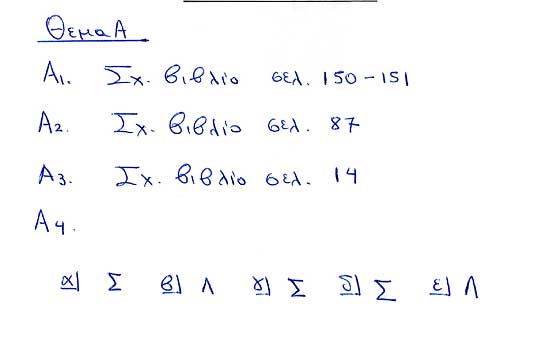 Θεμα Α
Α1. Σχ. βιβλίο σελ. 150-151
Α2. Σχ. βιβλίο σελ. 87
Α3. Σχ. βιβλίο σελ. 14
Α4.
α) Σ β) Λ γ) Σ δ) Σ ε) Λ